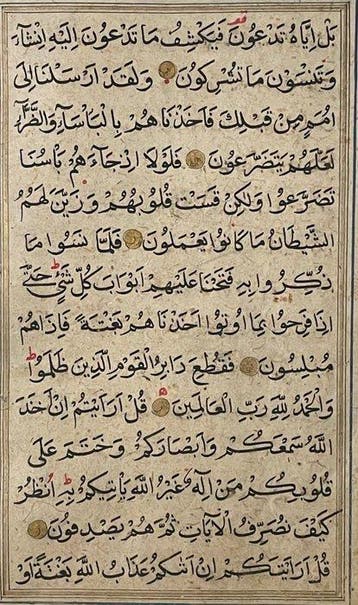 بَلْ اِيَّاهُ تَدْعُونَ فَيَكْشِفُ مَا تَدْعُونَ اِلَيْهِ اِنْ شَآءَ
وَتَنْسَوْنَ مَا تُشْرِكُونَ وَلَقَدْ اَرْسَلْنَا اِلٰى
اُمَمٍ مِنْ قَبْلِكَ فَاَخَذْنَاهُمْ بِالْبَاْسَآءِ وَالضَّرَّآءِ
لَعَلَّهُمْ يَتَضَرَّعُونَ فَلَوْلَا اِذْ جَآءَهُمْ بَاْسُنَا
تَضَرَّعُوا وَلٰكِنْ قَسَتْ قُلُوبُهُمْ وَزَيَّنَ لَهُمُ
الشَّيْطَانُ مَا كَانُوا يَعْمَلُونَ فَلَمَّا نَسُوا مَا
ذُكِّرُوا بِهِ فَتَحْنَا عَلَيْهِمْ اَبْوَابَ كُلِّ شَيْءٍ حَتّٰى
اِذَا فَرِحُوا بِمَا اُوتُوا اَخَذْنَاهُمْ بَغْتَةً فَاِذَاهُمْ
مُبْلِسُونَ فَقُطِعَ دَابِرُ الْقَوْمِ الَّذِينَ ظَلَمُوا
وَالْحَمْدُ لِلّٰهِ رَبِّ الْعَالَمِينَ قُلْ اَرَاَيْتُمْ اِنْ اَخَذَ
اللّٰهُ سَمْعَكُمْ وَاَبْصَارَكُمْ وَخَتَمَ عَلٰى
قُلُوبِكُمْ مَنْ اِلٰهٌ غَيْرُ اللّٰهِ يَاْتِيكُمْ بِهِ اُنْظُرْ
كَيْفَ نُصَرِّفُ الْاٰيَاتِ ثُمَّ هُمْ يَصْدِفُونَ
قُلْ اَرَاَيْتَكُمْ اِنْ اَتٰيكُمْ عَذَابُ اللّٰهِ بَغْتَةً اَوْ